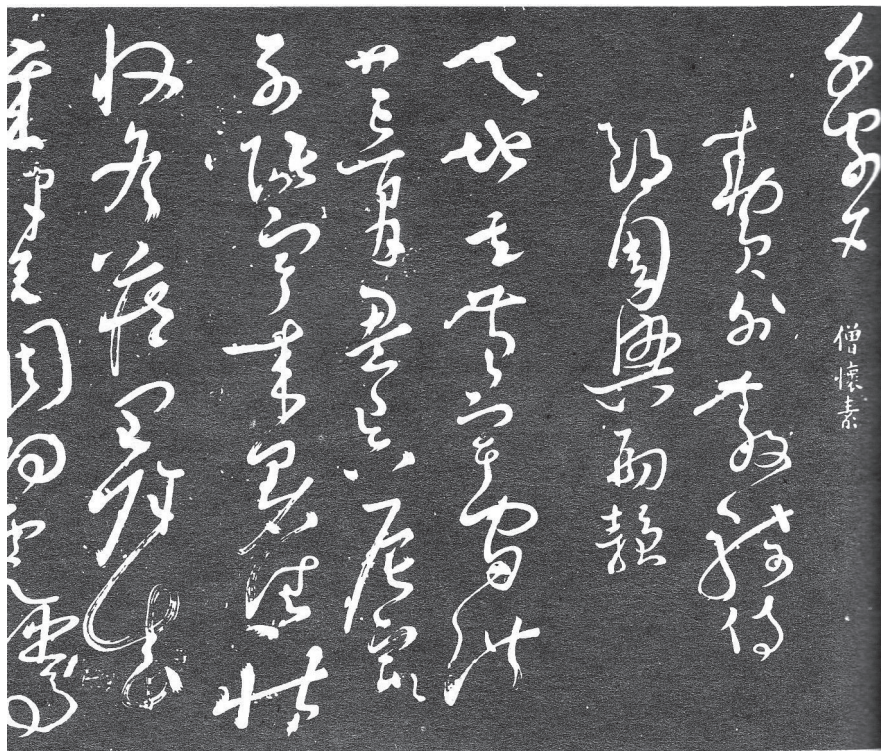 千字文
僧懷素
勅員外散騎侍
郎周興嗣韻
天地玄黃宇宙洪
荒日月盈昃辰宿
列張寒來暑往秋
收冬藏閏餘成
歲律呂調陽雲騰